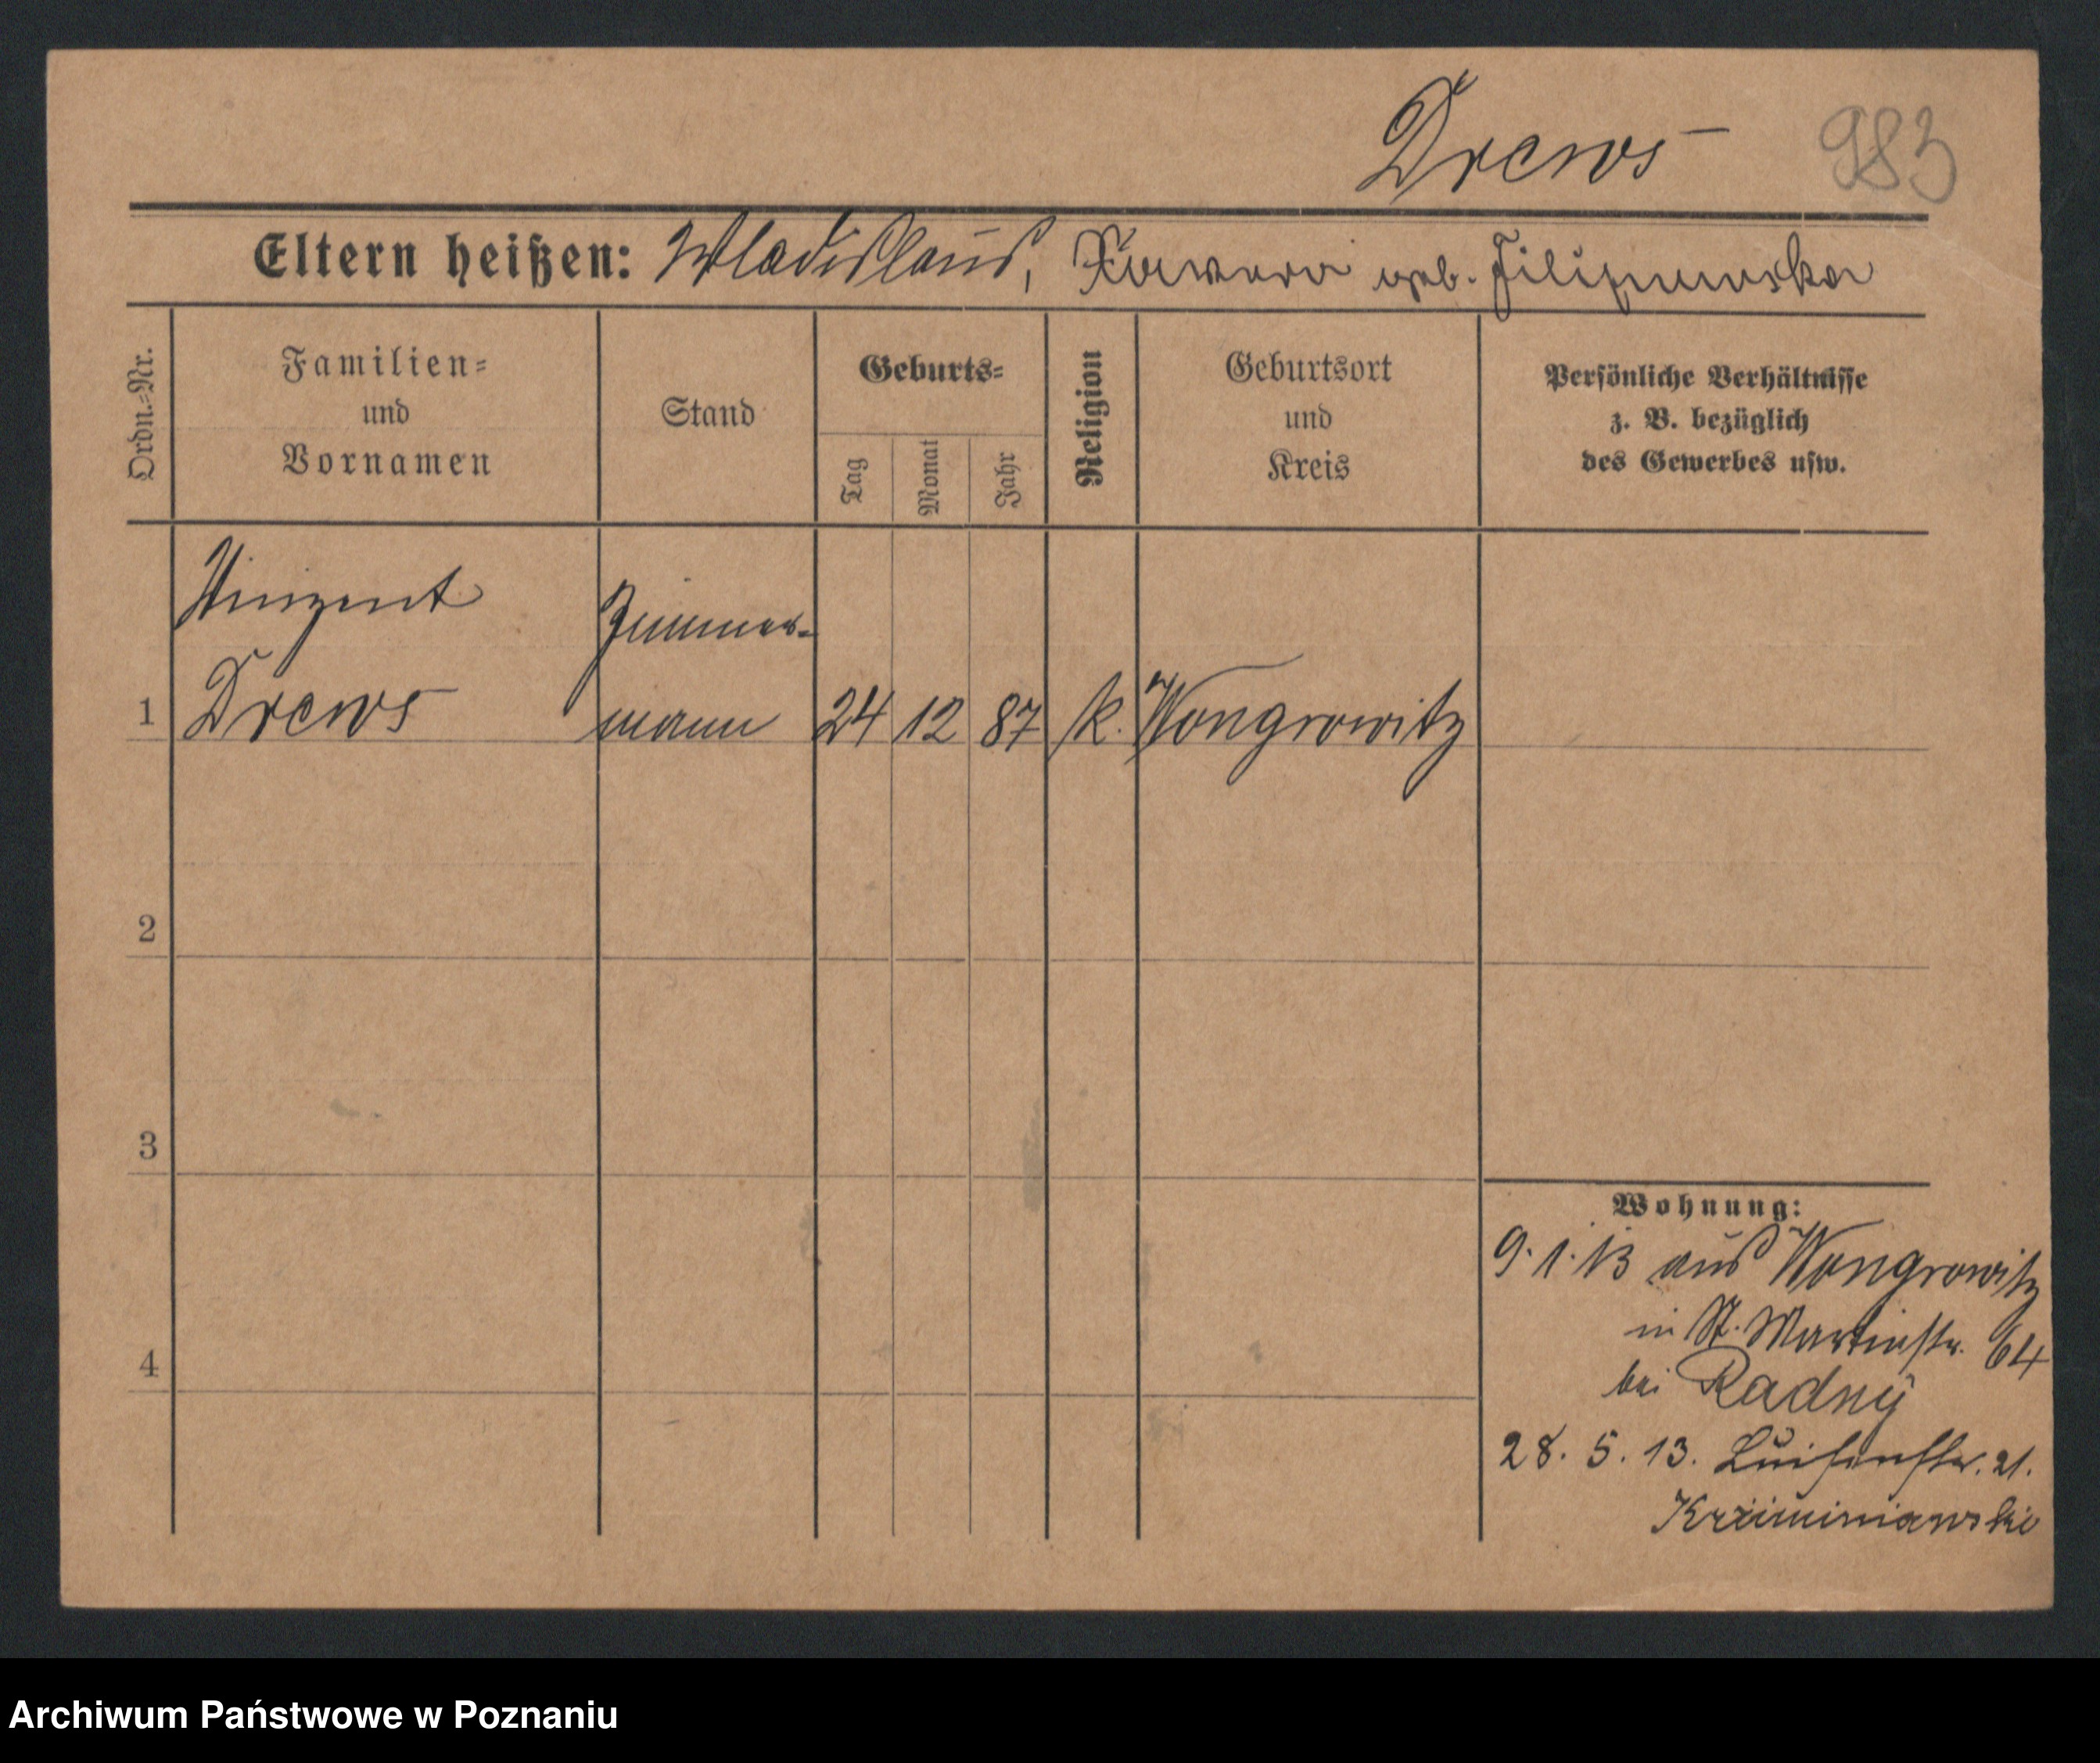 Drews
983
Eltern heißen: Wladislaus, geb. Filipowska
Ordn.-Nr.
Familien-
und
Vornamen
Stand
Geburts-
Tag
Monat
Jahr
Religion
Geburtsort
und
Kreis
Persönliche Verhältnisse
z. B. bezüglich
des Gewerbes usw.
Vinzent
Zimmer-
1 Drews mann 24 12 87 k. Wongrowitz
2
3
4
Wohnung:
9. 1. 13 aus Wongrowitz
in St. Martinstr. 64
bei Radny
28. 5. 13. Luisenstr. 21.
Archiwum Państwowe w Poznaniu